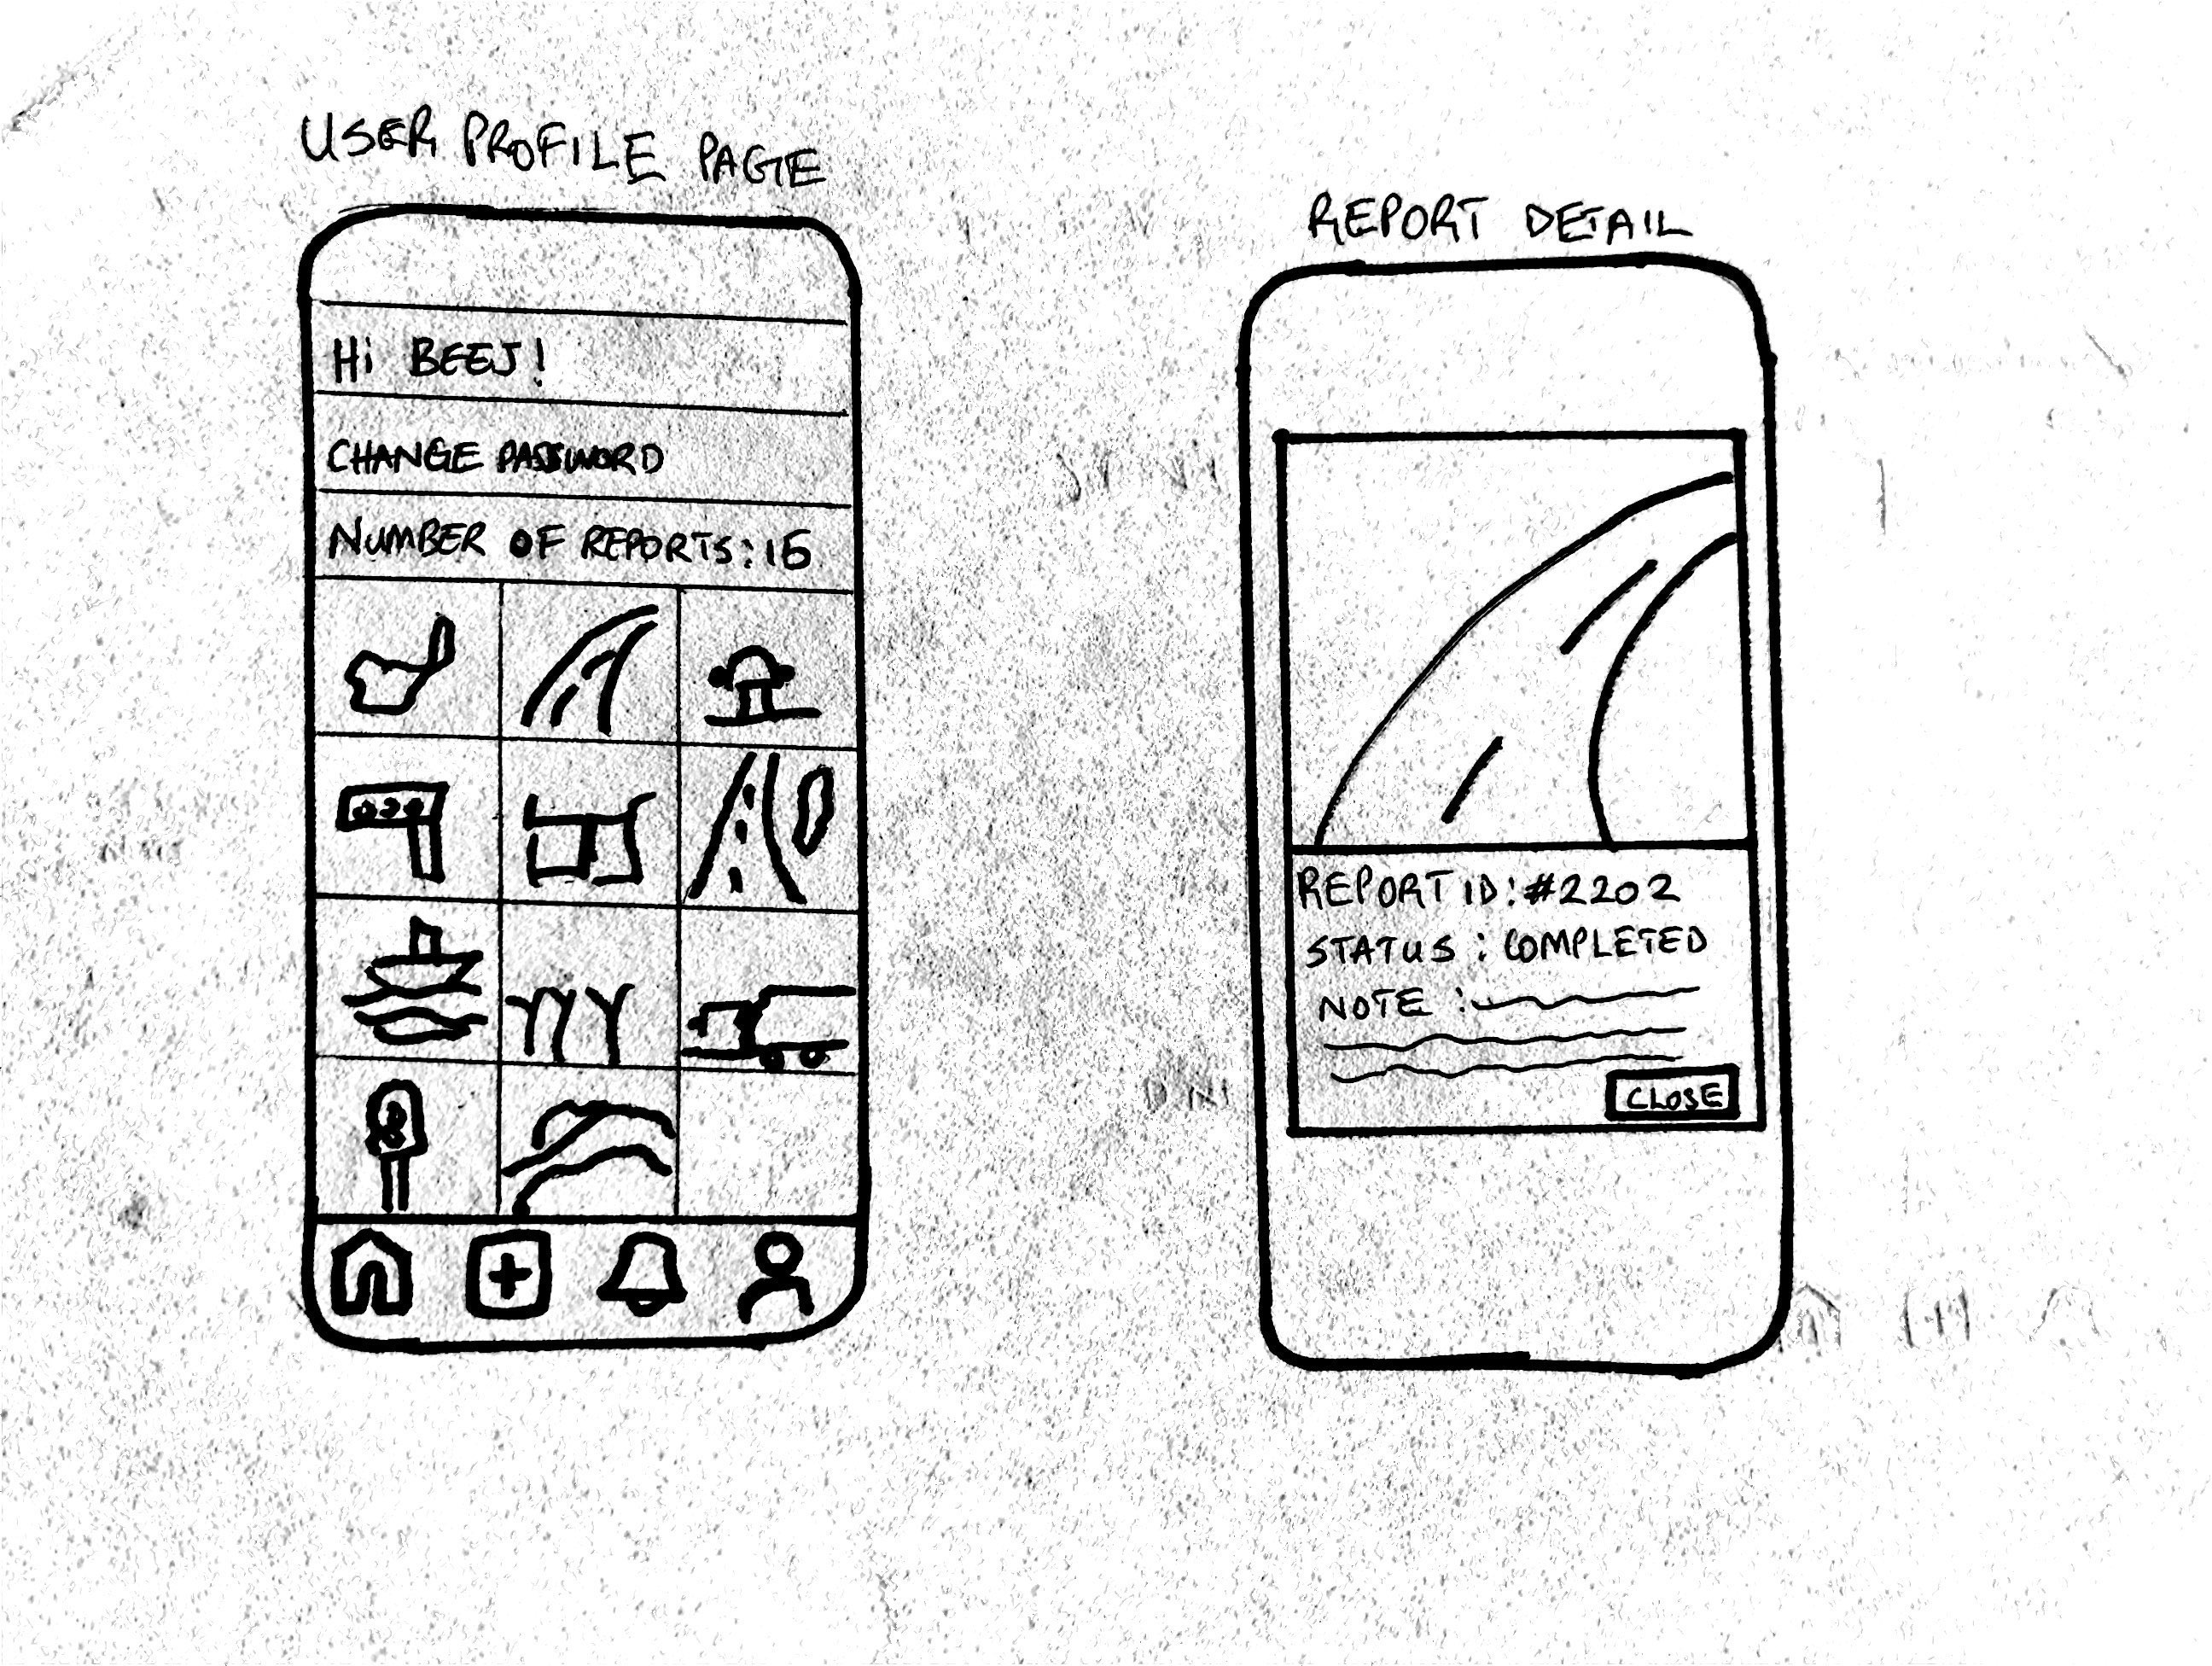 USER PROFILE PAGE
Hi BEEJ!
CHANGE PASSWORD
NUMBER OF REPORTS: 15
REPORT DETAIL
REPORT ID: #2202
STATUS : COMPLETED
NOTE :
CLOSE